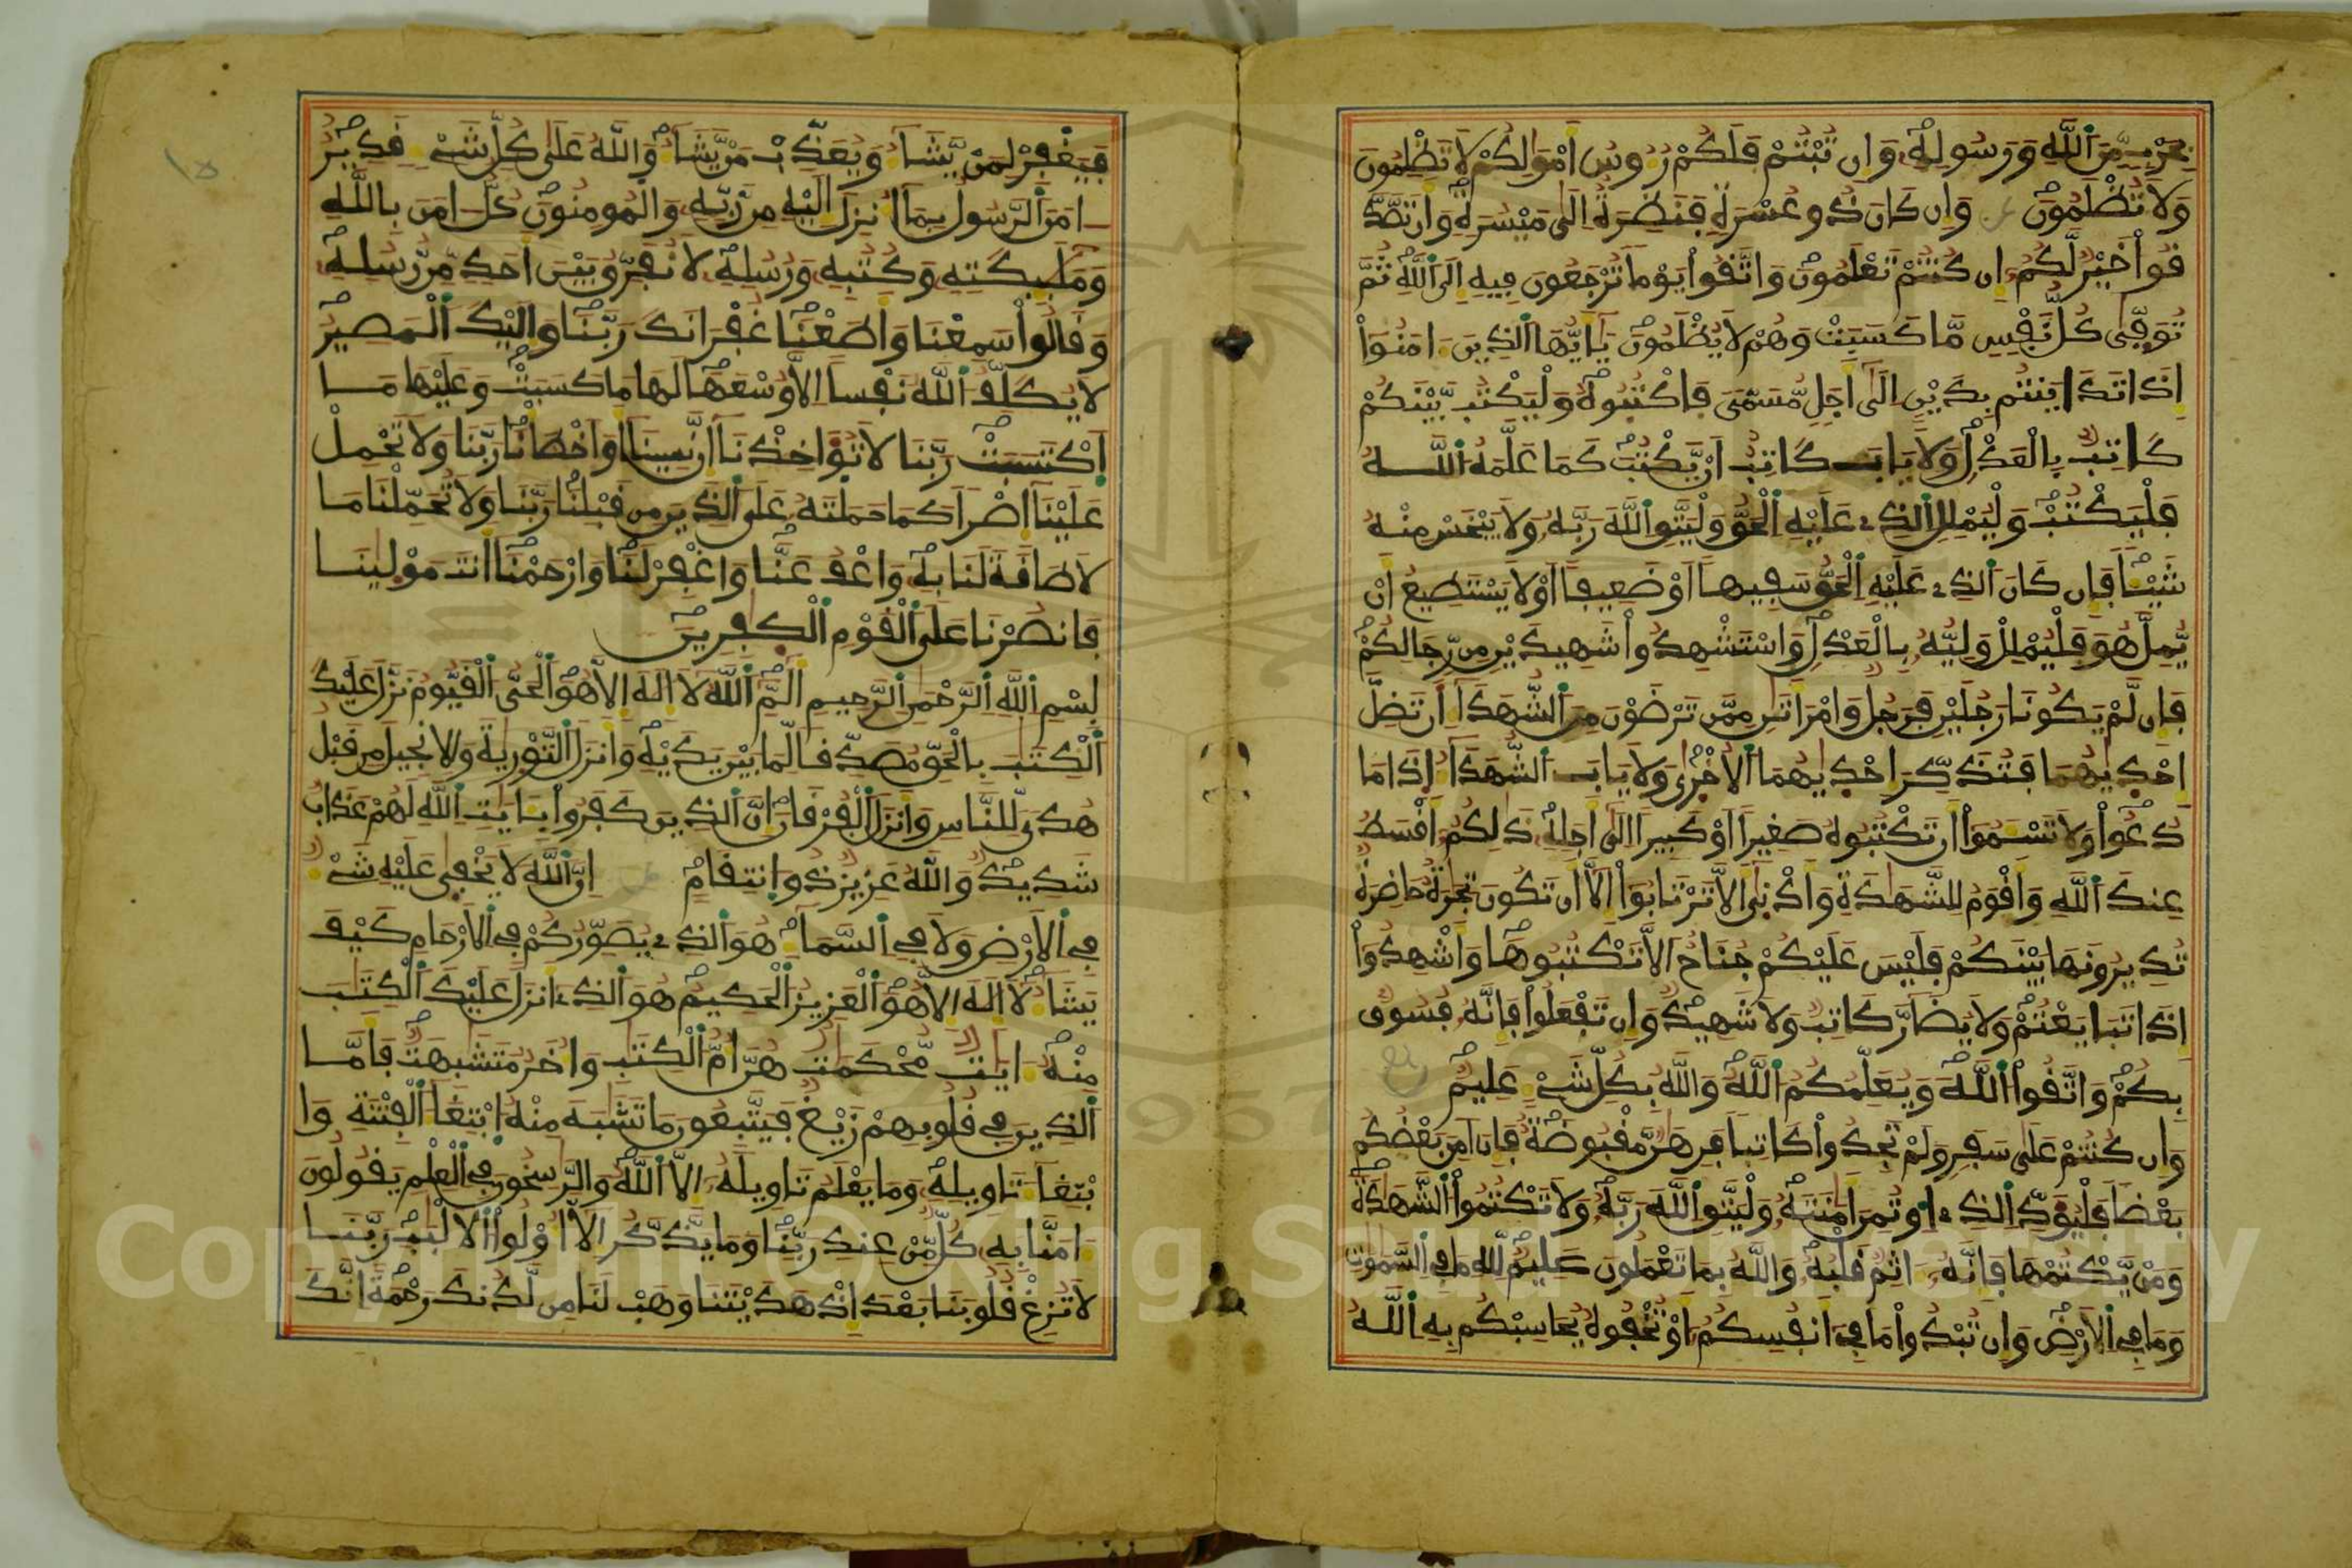 بِحَرْبٍ مِّنَ اَللَّهِ وَرَسُولِهِ وَإِن تُبْتُمْ فَلَكُمْ رُءُوسُ أَمْوَالِكُمْ لَا تَظْلِمُونَ
وَلَا تُظْلَمُونَ وَإِن كَانَ ذُو عُسْرَةٍ فَنَظِرَةٌ إِلَى مَيْسُرَةٍ وَأَن تَصَّدَّ
قُواْ خَيْرٌ لَّكُمْ إِن كُنتُمْ تَعْلَمُونَ وَاتَّقُواْ يَوْمًا تُرْجَعُونَ فِيهِ إِلَى اَللَّهِ ثُمَّ
تُوَفَّى كُلُّ نَفْسٍ مَّا كَسَبَتْ وَهُمْ لَا يُظْلَمُونَ يَا أَيُّهَا الَذِينَ ءَامَنُواْ
إِذَا تَدَايَنتُم بِدَيْنٍ إِلَى أَجَلٍ مُّسَمًّى فَاكْتُبُوهُ وَلْيَكْتُب بَّيْنَكُمْ
كَاتِبٌ بِالْعَدْلِ وَلَا يَابَ كَاتِبٌ أَنْ يَّكْتُبَ كَمَا عَلَّمَهُ اللَّهُ
فَلْيَكْتُبْ وَلْيُمْلِلِ اِلذِي عَلَيْهِ اِلْحَقُّ وَلْيَتَّقِ اِللَّهَ رَبَّهُ وَلَا يَبْخَسْ مِنْهُ
شَيْئًا فَإِن كَانَ اَلذِي عَلَيْهِ اِلْحَقُّ سَفِيهًا أَوْ ضَعِيفًا أَوْ لَا يَسْتَطِيعُ أَنْ
يُّمِلَّ هُوَ فَلْيُمْلِلْ وَلِيُّهُ بِالْعَدْلِ وَاسْتَشْهِدُواْ شَهِيدَيْنِ مِن رِّجَالِكُمْ
فَإِن لَّمْ يَكُونَا رَجُلَيْنِ فَرَجُلٌ وَامْرَأَتَانِ مِمَّن تَرْضَوْنَ مِنَ اَلشُّهَدَاءِ أَن تَضِلَّ
إِحْدَيٰهُمَا فَتُذَكِّرَ إِحْدَيٰهُمَا اَلْأُخْرَى وَلَا يَابَ اَلشُّهَدَاءُ إِذَا مَا
دُعُواْ وَلَا تَسْـَٔمُواْ أَن تَكْتُبُوهُ صَغِيرًا أَوْ كَبِيرًا إِلَى أَجَلِهِ ذَٰلِكُمْ أَقْسَطُ
عِندَ اَللَّهِ وَأَقْوَمُ لِلشَّهَٰدَةِ وَأَدْنَى أَلَّا تَرْتَابُواْ إِلَّا أَن تَكُونَ تِجَٰرَةٌ حَاضِرَةٌ
تُدِيرُونَهَا بَيْنَكُمْ فَلَيْسَ عَلَيْكُمْ جُنَاحٌ أَلَّا تَكْتُبُوهَا وَأَشْهِدُواْ
إِذَا تَبَايَعْتُمْ وَلَا يُضَارَّ كَاتِبٌ وَلَا شَهِيدٌ وَإِن تَفْعَلُواْ فَإِنَّهُ فُسُوقٌ
بِكُمْ وَاتَّقُواْ اللَّهَ وَيُعَلِّمُكُمُ اللَّهُ وَاللَّهُ بِكُلِّ شَيْءٍ عَلِيمٌ
وَإِن كُنتُمْ عَلَى سَفَرٍ وَلَمْ تَجِدُواْ كَاتِبًا فَرِهَٰنٌ مَّقْبُوضَةٌ فَإِنْ أَمِنَ بَعْضُكُم
بَعْضًا فَلْيُؤَدِّ اِلذِي اِوتُمِنَ أَمَٰنَتَهُ وَلْيَتَّقِ اِللَّهَ رَبَّهُ وَلَا تَكْتُمُواْ الشَّهَٰدَةَ
وَمَنْ يَّكْتُمْهَا فَإِنَّهُ ءَاثِمٌ قَلْبُهُ وَاللَّهُ بِمَا تَعْمَلُونَ عَلِيمٌ لِلَّهِ مَا فِي اِلسَّمَٰوَٰتِ
وَمَا فِي اِلْأَرْضِ وَإِن تُبْدُواْ مَا فِي أَنفُسِكُمْ أَوْ تُخْفُوهُ يُحَاسِبْكُم بِهِ اِللَّهُ
فَيَغْفِرْ لِمَنْ يَّشَاءُ وَيُعَذِّبْ مَنْ يَّشَاءُ وَاللَّهُ عَلَى كُلِّ شَيْءٍ قَدِيرٌ
ءَامَنَ اَلرَّسُولُ بِمَا أُنزِلَ إِلَيْهِ مِن رَّبِّهِ وَالْمُومِنُونَ كُلٌّ ءَامَنَ بِاللَّهِ
وَمَلَٰئِكَتِهِ وَكُتُبِهِ وَرُسُلِهِ لَا نُفَرِّقُ بَيْنَ أَحَدٍ مِّن رُّسُلِهِ
وَقَالُواْ سَمِعْنَا وَأَطَعْنَا غُفْرَانَكَ رَبَّنَا وَإِلَيْكَ اَلْمَصِيرُ
لَا يُكَلِّفُ اُللَّهُ نَفْسًا إِلَّا وُسْعَهَا لَهَا مَا كَسَبَتْ وَعَلَيْهَا مَا
اَكْتَسَبَتْ رَبَّنَا لَا تُؤَاخِذْنَا إِن نَّسِينَا أَوْ أَخْطَأْنَا رَبَّنَا وَلَا تَحْمِلْ
عَلَيْنَا إِصْرًا كَمَا حَمَلْتَهُ عَلَى اَلذِينَ مِن قَبْلِنَا رَبَّنَا وَلَا تُحَمِّلْنَا مَا
لَا طَاقَةَ لَنَا بِهِ وَاعْفُ عَنَّا وَاغْفِرْ لَنَا وَارْحَمْنَا أَنتَ مَوْلَيٰنَا
فَانصُرْنَا عَلَى اَلْقَوْمِ اِلْكَٰفِرِينَ
بِسْمِ اِللَّهِ اِلرَّحْمَٰنِ اِلرَّحِيمِ أَلَمِّ اَللَّهُ لَا إِلَٰهَ إِلَّا هُوَ اَلْحَيُّ اُلْقَيُّومُ نَزَّلَ عَلَيْكَ
اَلْكِتَٰبَ بِالْحَقِّ مُصَدِّقًا لِّمَا بَيْنَ يَدَيْهِ وَأَنزَلَ اَلتَّوْرَيٰةَ وَالْإِنجِيلَ مِن قَبْلُ
هُدًى لِّلنَّاسِ وَأَنزَلَ اَلْفُرْقَانَ إِنَّ اَلذِينَ كَفَرُواْ بِـَٔايَٰتِ اِللَّهِ لَهُمْ عَذَابٌ
شَدِيدٌ وَاللَّهُ عَزِيزٌ ذُو اِنتِقَامٍ إِنَّ اَللَّهَ لَا يَخْفَى عَلَيْهِ شَيْءٌ
فِي اِلْأَرْضِ وَلَا فِي اِلسَّمَاءِ هُوَ اَلذِي يُصَوِّرُكُمْ فِي اِلْأَرْحَامِ كَيْفَ
يَشَاءُ لَا إِلَٰهَ إِلَّا هُوَ اَلْعَزِيزُ اُلْحَكِيمُ هُوَ اَلذِي أَنزَلَ عَلَيْكَ اَلْكِتَٰبَ
مِنْهُ ءَايَٰتٌ مُّحْكَمَٰتٌ هُنَّ أُمُّ اُلْكِتَٰبِ وَأُخَرُ مُتَشَٰبِهَٰتٌ فَأَمَّا
اَلذِينَ فِي قُلُوبِهِمْ زَيْغٌ فَيَتَّبِعُونَ مَا تَشَٰبَهَ مِنْهُ اُبْتِغَاءَ اَلْفِتْنَةِ وَا
بْتِغَاءَ تَاوِيلِهِ وَمَا يَعْلَمُ تَاوِيلَهُ إِلَّا اَللَّهُ وَالرَّٰسِخُونَ فِي اِلْعِلْمِ يَقُولُونَ
ءَامَنَّا بِهِ كُلٌّ مِّنْ عِندِ رَبِّنَا وَمَا يَذَّكَّرُ إِلَّا أُوْلُواْ اُلْأَلْبَٰبِ رَبَّنَا
لَا تُزِغْ قُلُوبَنَا بَعْدَ إِذْ هَدَيْتَنَا وَهَبْ لَنَا مِن لَّدُنكَ رَحْمَةً إِنَّكَ
Copyright © King Saud University